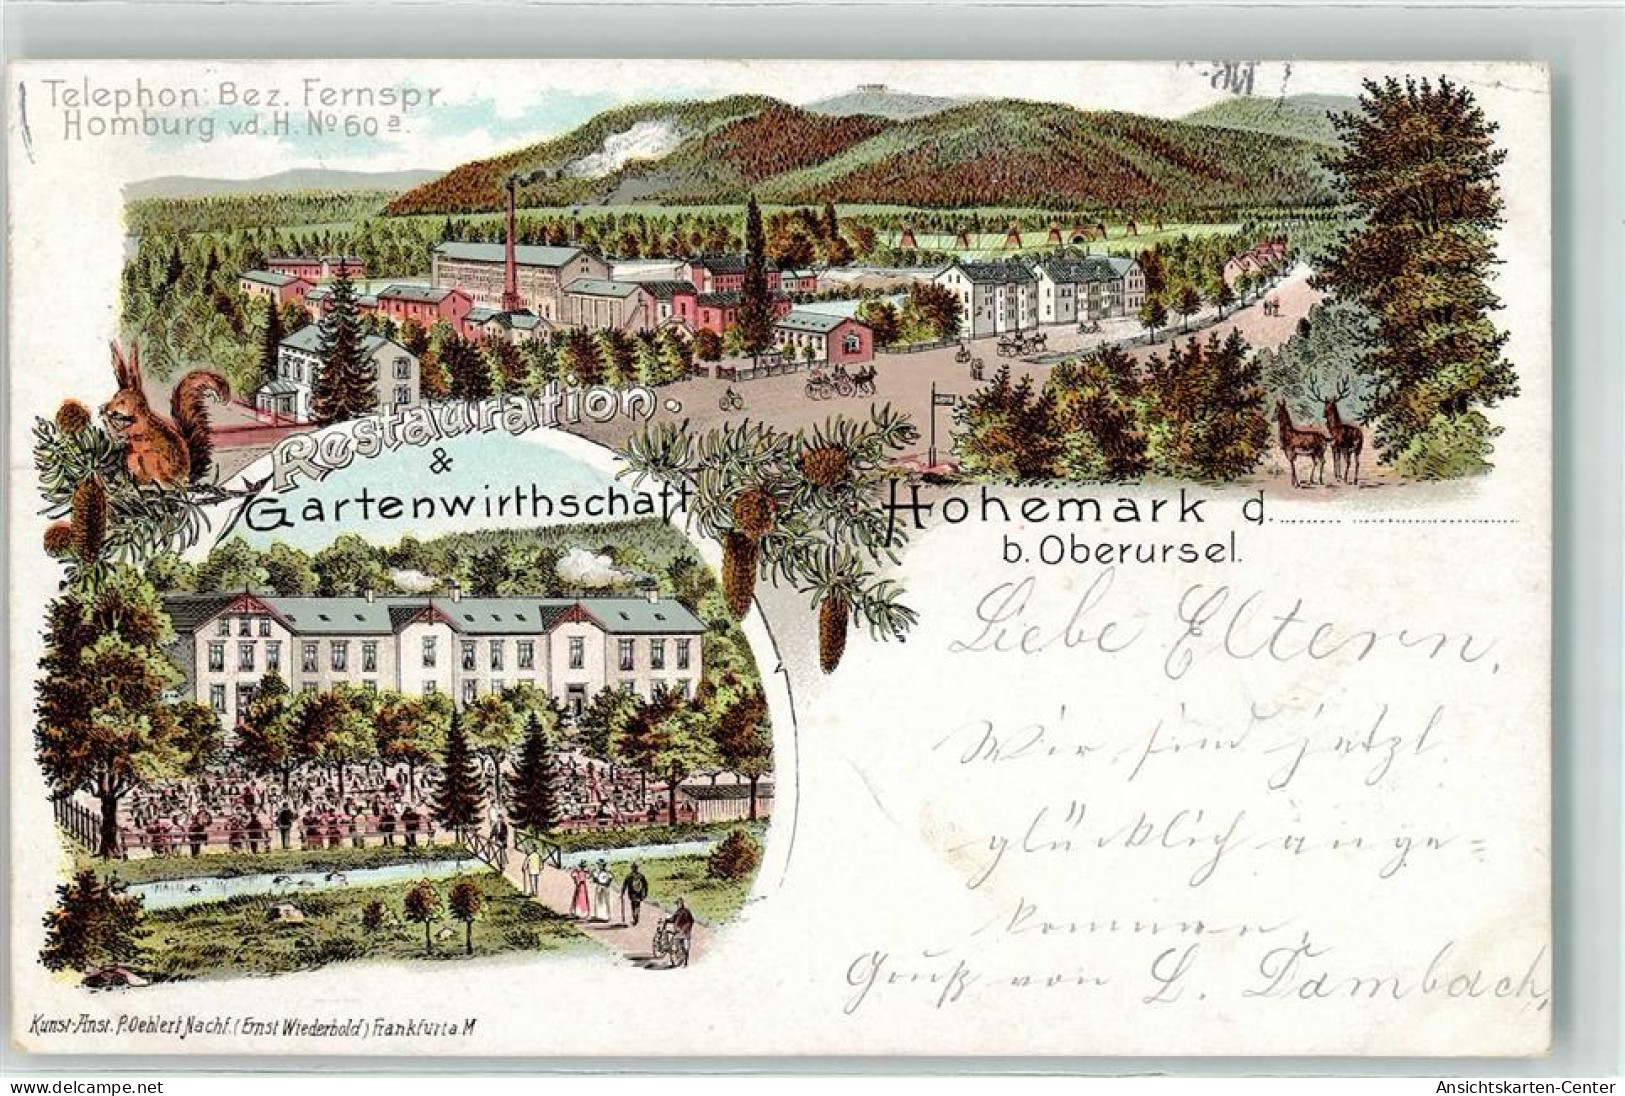 Telephon: Bez. Fernspr.
Homburg v.d.H. No 60 a.
Restauration.
&
Gartenwirthschaft
Hohemark d.
b. Oberursel.
Liebe Eltern,
Wir sind jetzt
glücklich ange=
kommen,
Gruß von L. Dambach,
Kunst-Anst. P. Oehlert Nachf. (Ernst Wiederbold) Frankfurt a. M
66196785
Ansichtskarten-Center